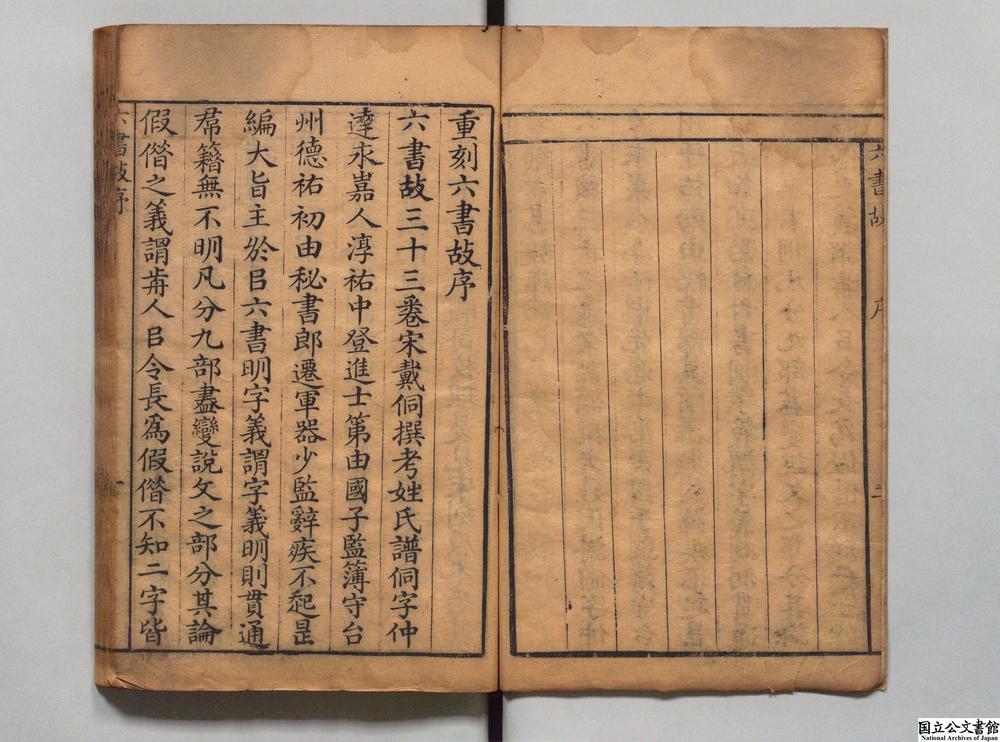 六書故 序 二
重刻六書故序
六書故三十三卷宋戴侗撰考姓氏譜侗字仲
達永嘉人淳祐中登進士第由國子監簿守台
州德祐初由秘書郎遷軍器少監辭疾不起昰
編大旨主於㠯六書明字義謂字義明則貫通
羣籍無不明凡分九部盡變說文之部分其論
假借之義謂歬人㠯令長爲假借不知二字皆
六書故序
国立公文書館
National Archives of Japan